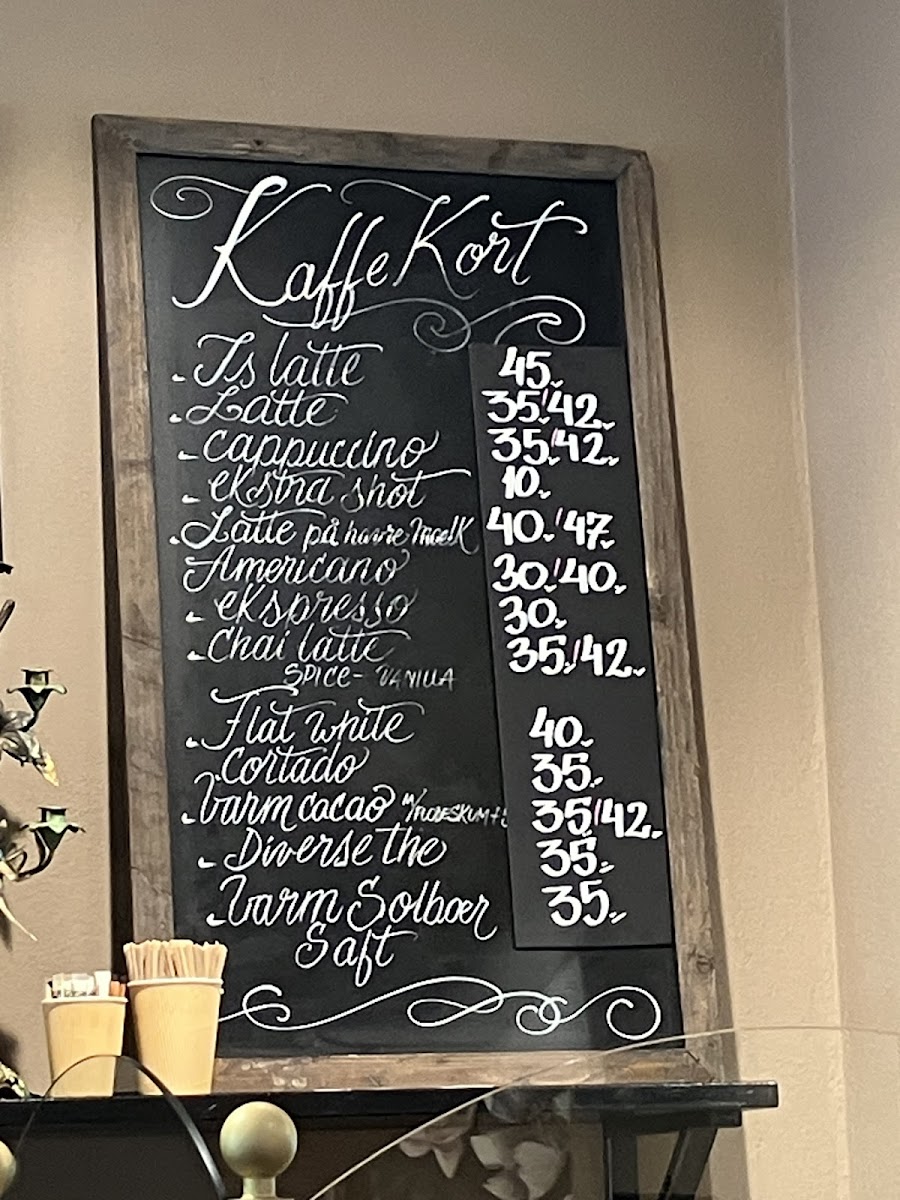 Kaffe Kort
- Is latte 45,-
- Latte 35,-/42,-
- cappuccino 35,-/42,-
- ekstra shot 10,-
- Latte på havre mælk 40,-/47,-
Americano 30,-/40,-
- ekspresso 30,-
- Chai latte 35,-/42,-
SPICE - VANILLA
- Flat white 40,-
- Cortado 35,-
- Varm cacao M/FLØDESKUM 35,-/42,-
- Diverse the 35,-
- Varm Solbær 35,-
Saft